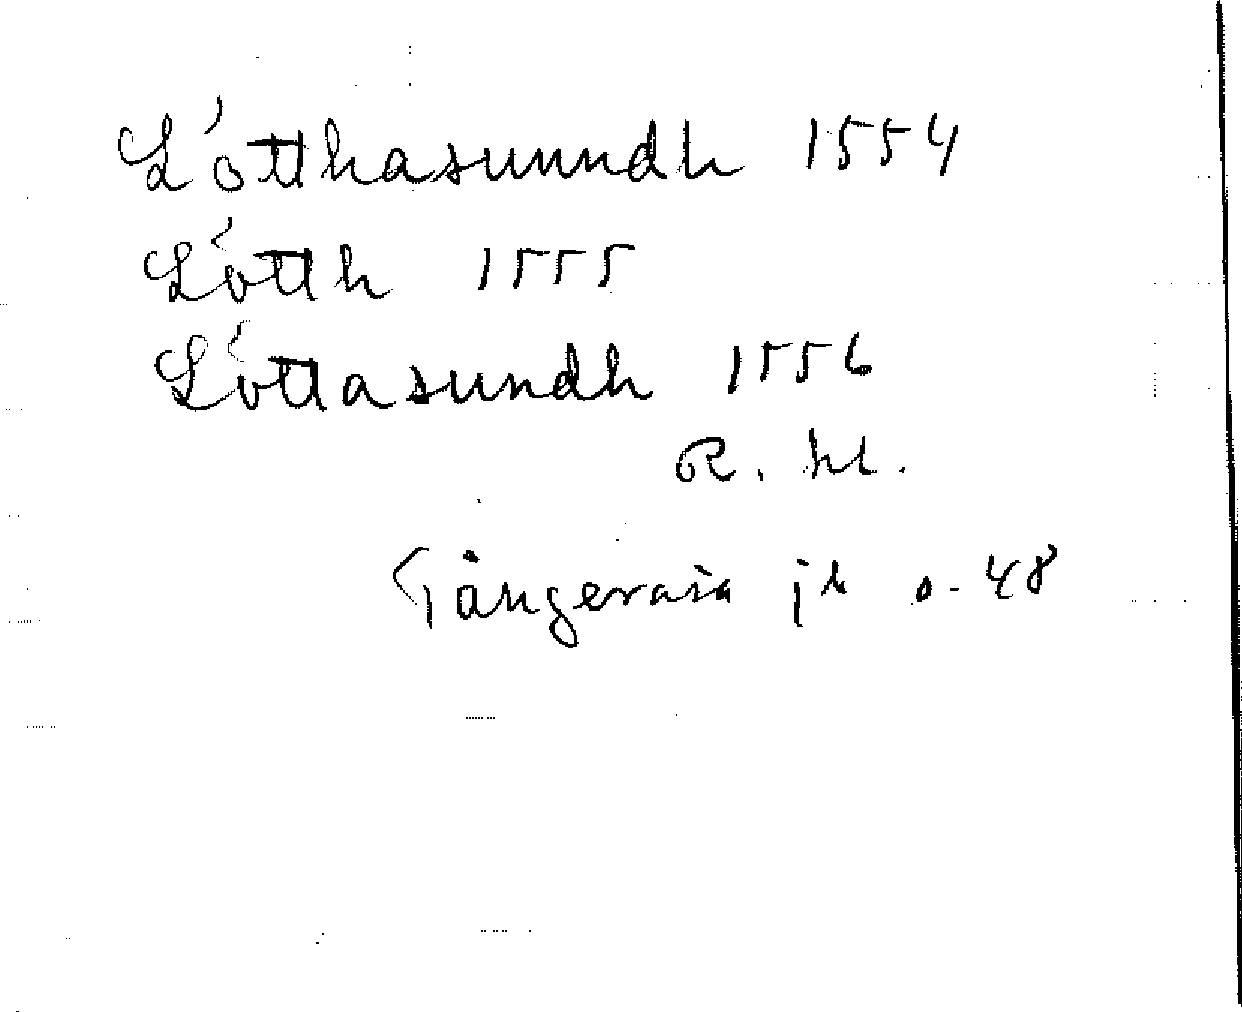 Lótthasunndh 1554
Lótth 1555
Lóttasundh 1556
R. hl.
Tångeraså jb s. 48